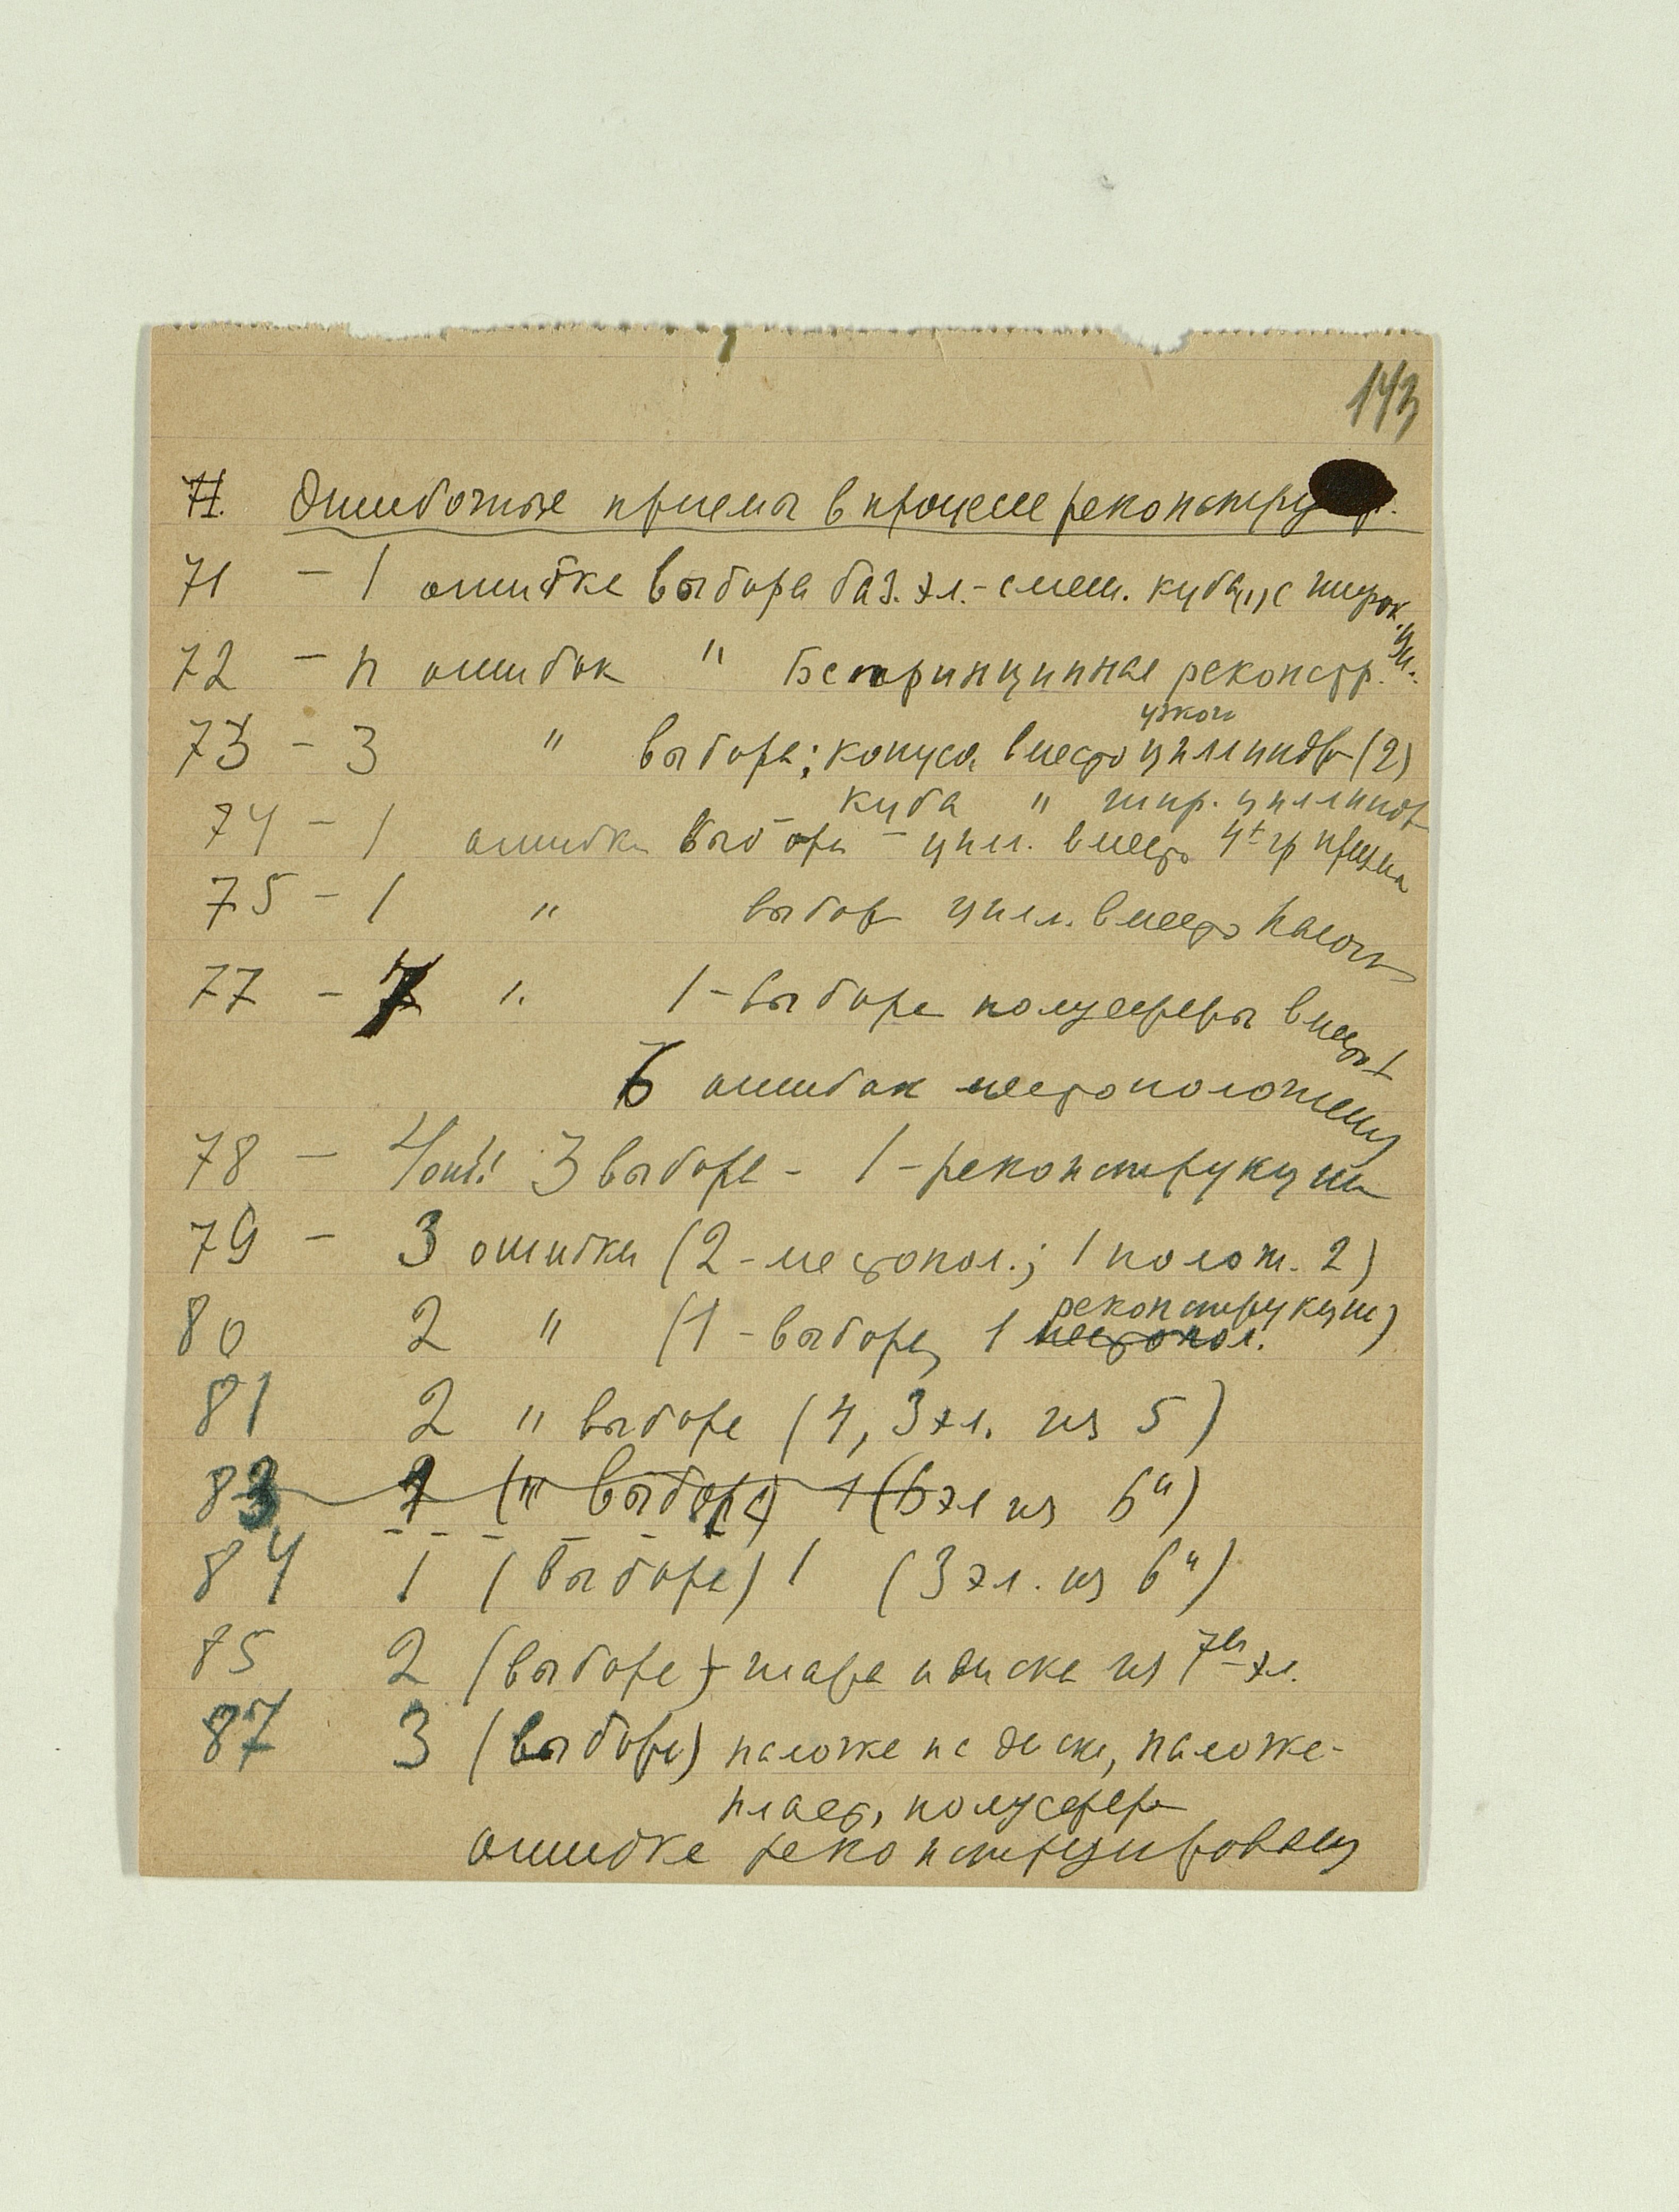 143
71. Ошибочные приемы в процессе реконстру
71 – 1 ошибка выбора баз. эл. – смеш. куба с широк. цил.
72 – n ошибок " Беспринципная реконстр.
73 – 3 " выбора; конуса вместо узкого цилиндра (2)
куба " шир. цилиндр
74 – 1 ошибка выбора – цил. вместо 4х гр призма
75 – 1 " выбора цил. вместо палочк
77 – 7 " 1 – выбора полусферы вместо
6 ошибок местоположения
78 – 4 ош.: 3 выбора – 1 – реконструкции
79 – 3 ошибки (2 – местопол.; 1 полож. 2)
80 2 " (1 – выбора, 1 местопол. реконструкции)
81 2 " выбора (4, 3 эл. из 5)
83 " выбора (6 эл из 6и)
84 1 (выбора) 1 (3 эл. из 6и)
85 2 (выбора) – шара и диска из 7ми эл.
87 3 (выбора) палочке на диске, палочке-
пласт, полусфера
ошибке реконструирования